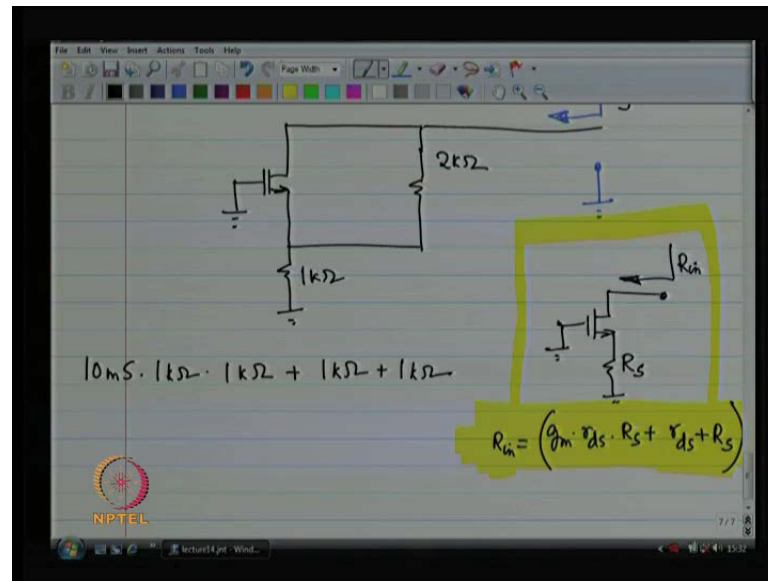 File Edit View Insert Actions Tools Help
Page Width
B I
2kΩ
1kΩ
Rin
RS
10mS · 1kΩ · 1kΩ + 1kΩ + 1kΩ
Rin = (gm · rds · RS + rds + RS)
NPTEL
7/7
lecture14.jnt - Wind...
15:32